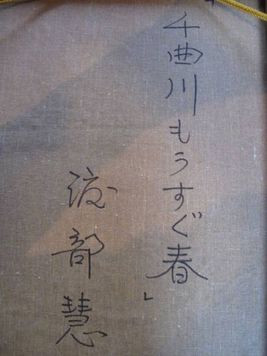 「千曲川もうすぐ春」
渡部慧